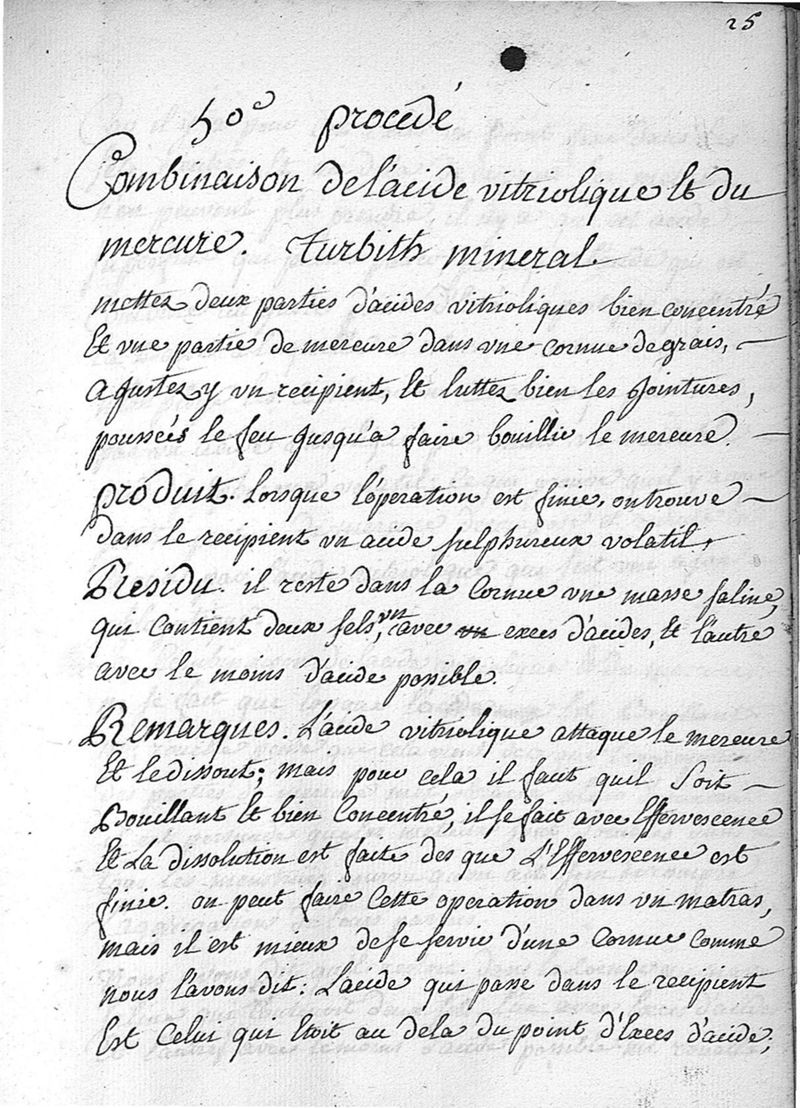 25
50e procedé
Combinaison de l'acide vitriolique et du
mercure. turbith mineral
mettez deux parties d'acides vitrioliques bien concentré
Et vne partie de mercure dans vne cornue de grais,
ajustez y vn recipient, Et luttez bien les Jointures,
poussés le feu Jusqu'a faire bouillir le mercure.
produit. Lorsque l'operation est finie, on trouve
dans le recipient vn acide sulphureux volatil,
Residu. il reste dans la Cornue vne masse saline,
qui contient deux sels, vn avec exces d'acides, Et l'autre
avec le moins d'acide possible.
Remarques. L'acide vitriolique attaque le mercure
Et le dissout; mais pour cela il faut quil Soit
Bouillant Et bien Concentré, il se fait avec Effervescence
Et La dissolution est faite des que L'Effervescence est
finie. on peut faire Cette operation dans vn matras,
mais il est mieux de se servir d'une Cornue Comme
nous l'avons dit: L'acide qui passe dans le recipient
Est Celui qui Etoit au dela du point d'Exces d'acide;